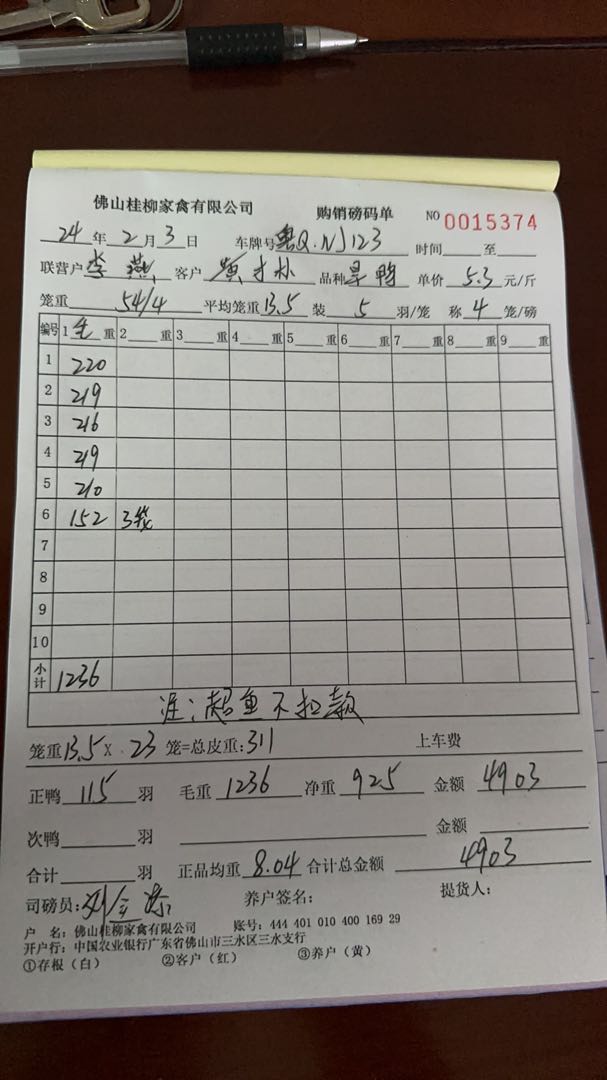 佛山桂柳家禽有限公司 购销磅码单 NO 0015374
24 年 2 月 3 日 车牌号 粤Q.NJ123 时间 至
联营户 李燕 客户 黄才林 品种 旱鸭 单价 5.3 元/斤
笼重 54/4 平均笼重 13.5 装 5 羽/笼 称 4 笼/磅
编号 1 毛 重 2 重 3 重 4 重 5 重 6 重 7 重 8 重 9 重
1 220
2 219
3 216
4 219
5 210
6 152 3笼
7
8
9
10
小计 1236
注:超重不扣款
笼重 13.5 X 23 笼=总皮重:311 上车费
正鸭 115 羽 毛重 1236 净重 925 金额 4903
次鸭 羽 金额
合计 羽 正品均重 8.04 合计总金额 4903
司磅员: 养户签名: 提货人:
户 名:佛山桂柳家禽有限公司 账号:444 401 010 400 169 29
开户行:中国农业银行广东省佛山市三水区三水支行
①存根(白) ②客户(红) ③养户(黄)